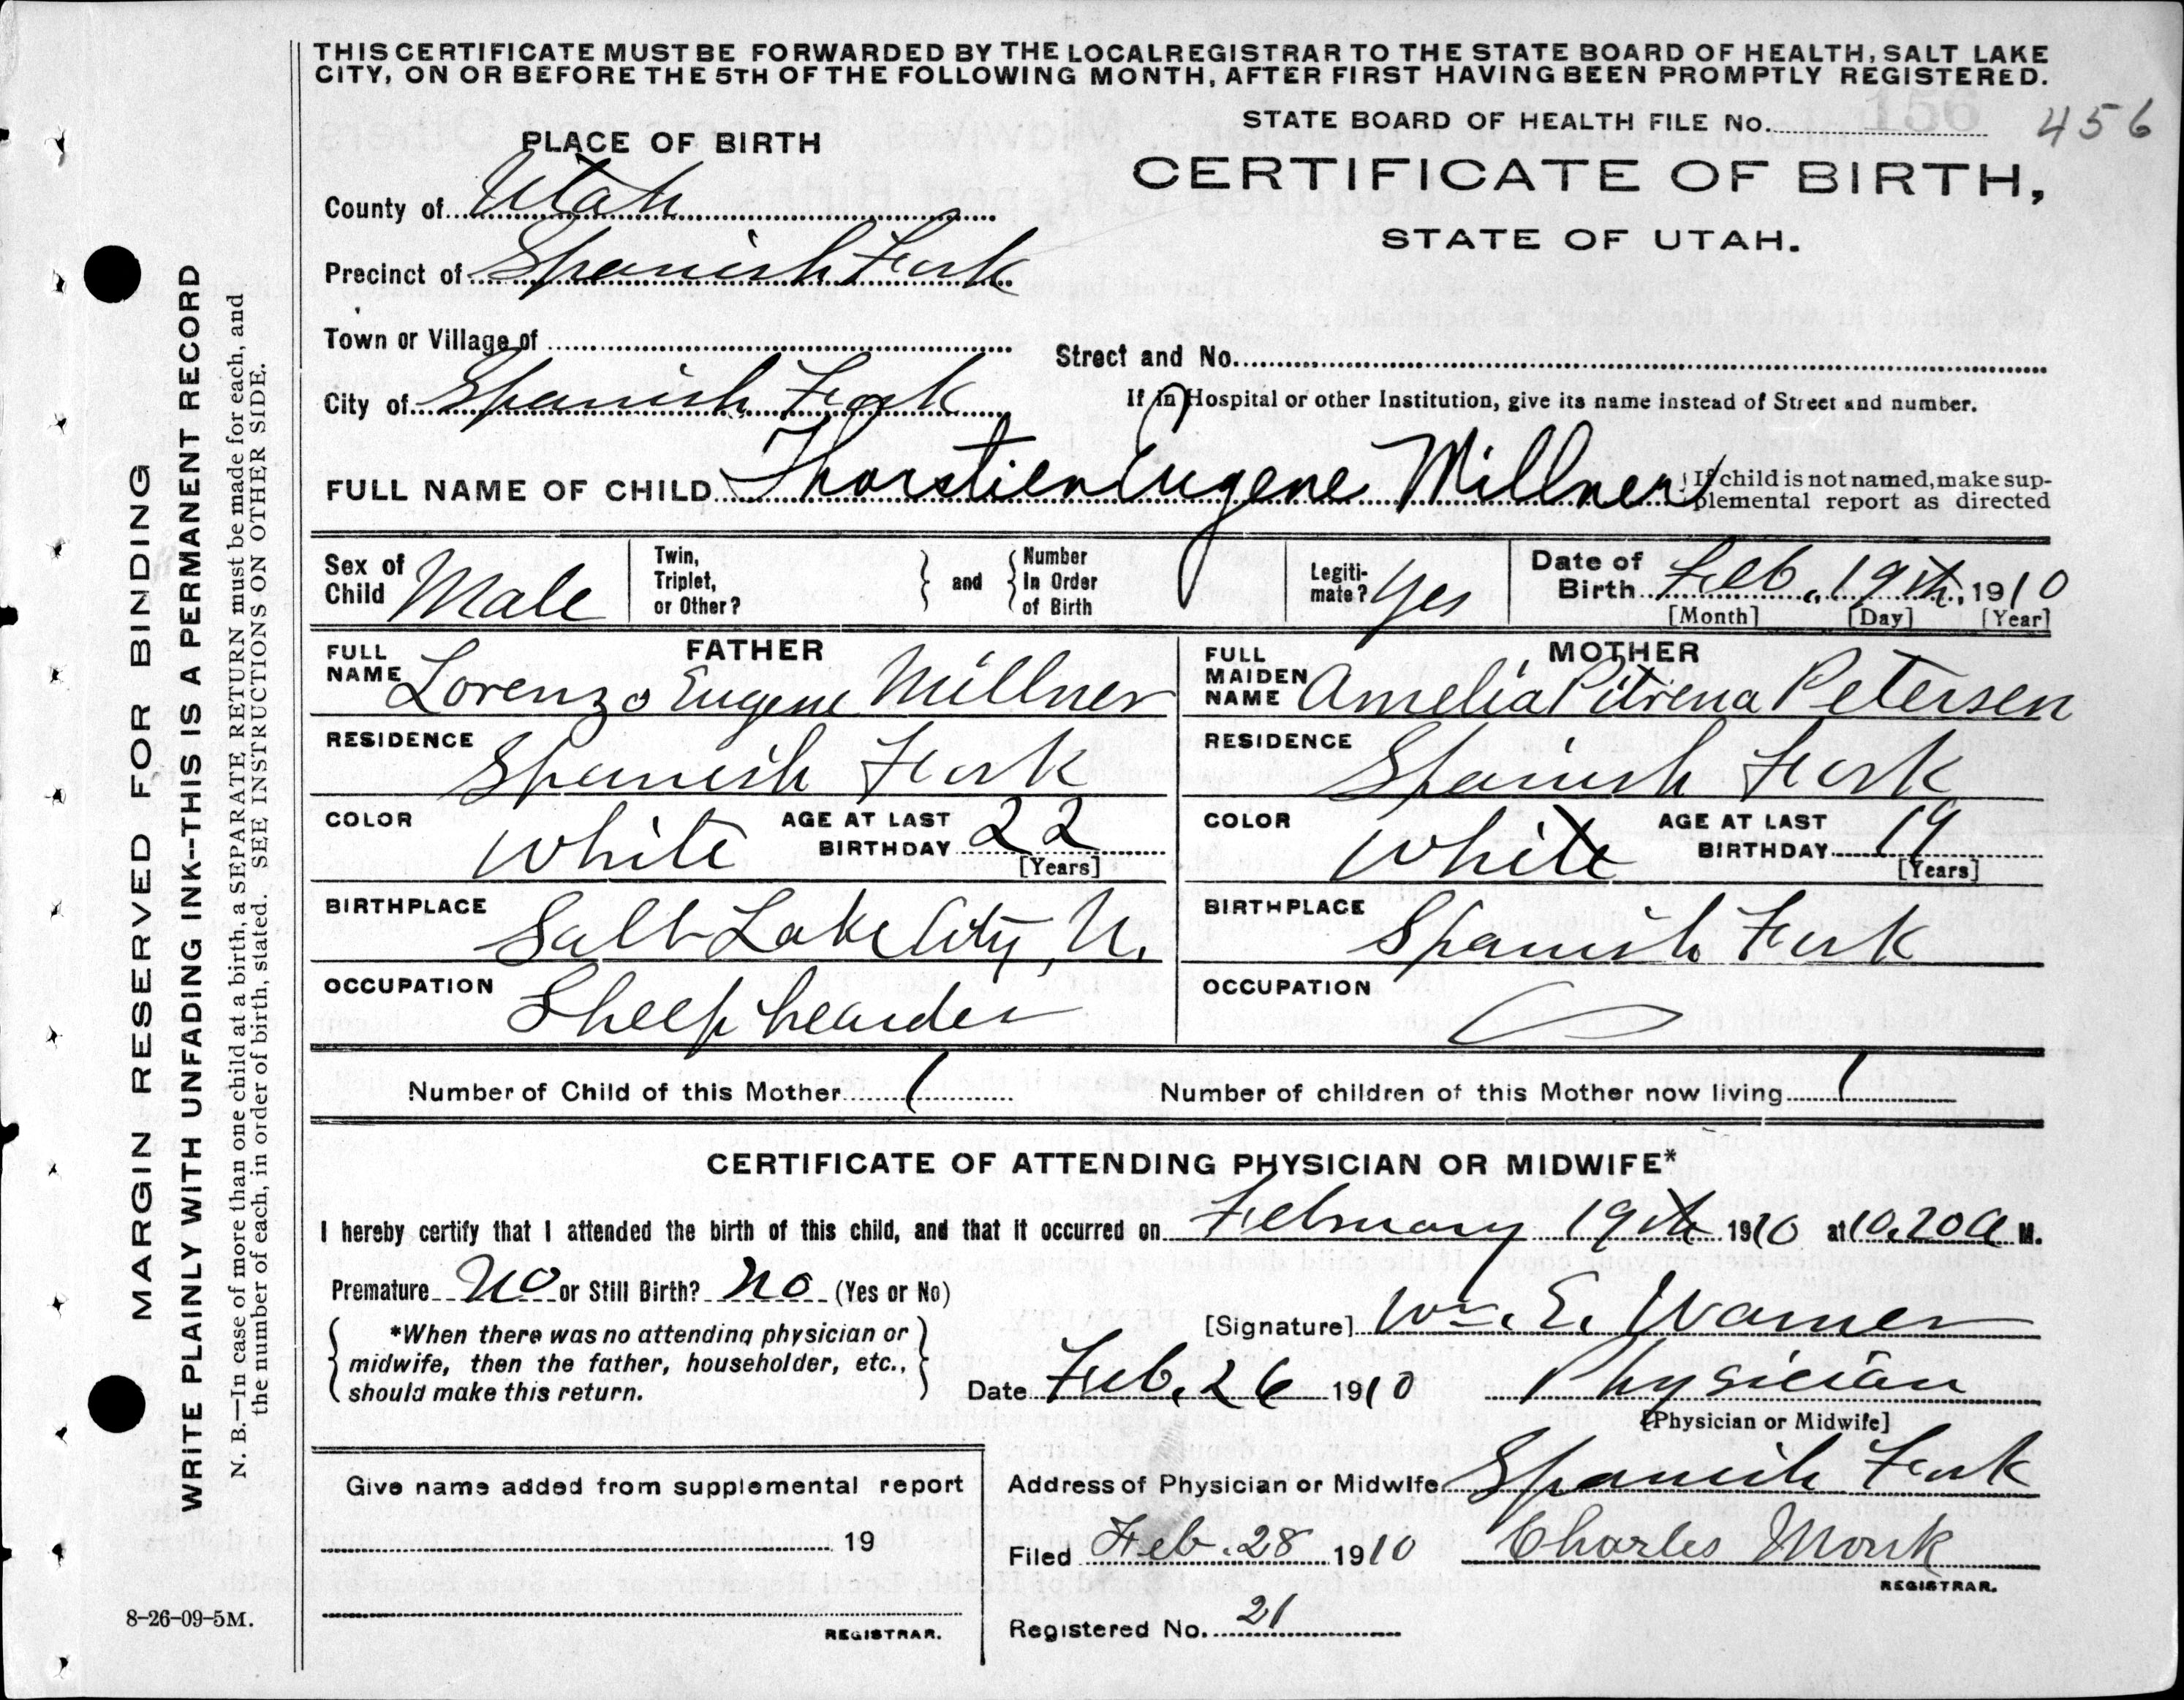 THIS CERTIFICATE MUST BE FORWARDED BY THE LOCAL REGISTRAR TO THE STATE BOARD OF HEALTH, SALT LAKE
CITY, ON OR BEFORE THE 5TH OF THE FOLLOWING MONTH, AFTER FIRST HAVING BEEN PROMPTLY REGISTERED.
STATE BOARD OF HEALTH FILE No. 156 456
PLACE OF BIRTH
CERTIFICATE OF BIRTH,
STATE OF UTAH.
County of Utah
Precinct of Spanish Fork
Town or Village of
Street and No.
City of Spanish Fork
If in Hospital or other Institution, give its name instead of Street and number.
FULL NAME OF CHILD Thorstien Eugene Millner
If child is not named, make sup-
plemental report as directed
Sex of Child Male
Twin, Triplet, or Other?
and
Number In Order of Birth
Legiti-mate? Yes
Date of Birth Feb. 19th, 1910
[Month] [Day] [Year]
FATHER
FULL NAME Lorenzo Eugene Millner
RESIDENCE Spanish Fork
COLOR White AGE AT LAST BIRTHDAY 22 [Years]
BIRTHPLACE Salt Lake City, U.
OCCUPATION Sheep hearder
MOTHER
FULL MAIDEN NAME Amelia Pitrena Petersen
RESIDENCE Spanish Fork
COLOR White AGE AT LAST BIRTHDAY 19 [Years]
BIRTHPLACE Spanish Fork
OCCUPATION
Number of Child of this Mother 1
Number of children of this Mother now living 1
CERTIFICATE OF ATTENDING PHYSICIAN OR MIDWIFE*
I hereby certify that I attended the birth of this child, and that it occurred on February 19th 1910 at 10.20 a M.
Premature No or Still Birth? No (Yes or No)
*When there was no attending physician or
midwife, then the father, householder, etc.,
should make this return.
[Signature] Wm. E. Warner
Date Feb. 26 1910 Physician
[Physician or Midwife]
Give name added from supplemental report
19
REGISTRAR.
Address of Physician or Midwife Spanish Fork
Filed Feb. 28 1910 Charles Monk
REGISTRAR.
Registered No. 21
MARGIN RESERVED FOR BINDING
WRITE PLAINLY WITH UNFADING INK--THIS IS A PERMANENT RECORD
N. B.—In case of more than one child at a birth, a SEPARATE RETURN must be made for each, and
the number of each, in order of birth, stated. SEE INSTRUCTIONS ON OTHER SIDE.
8-26-09-5M.